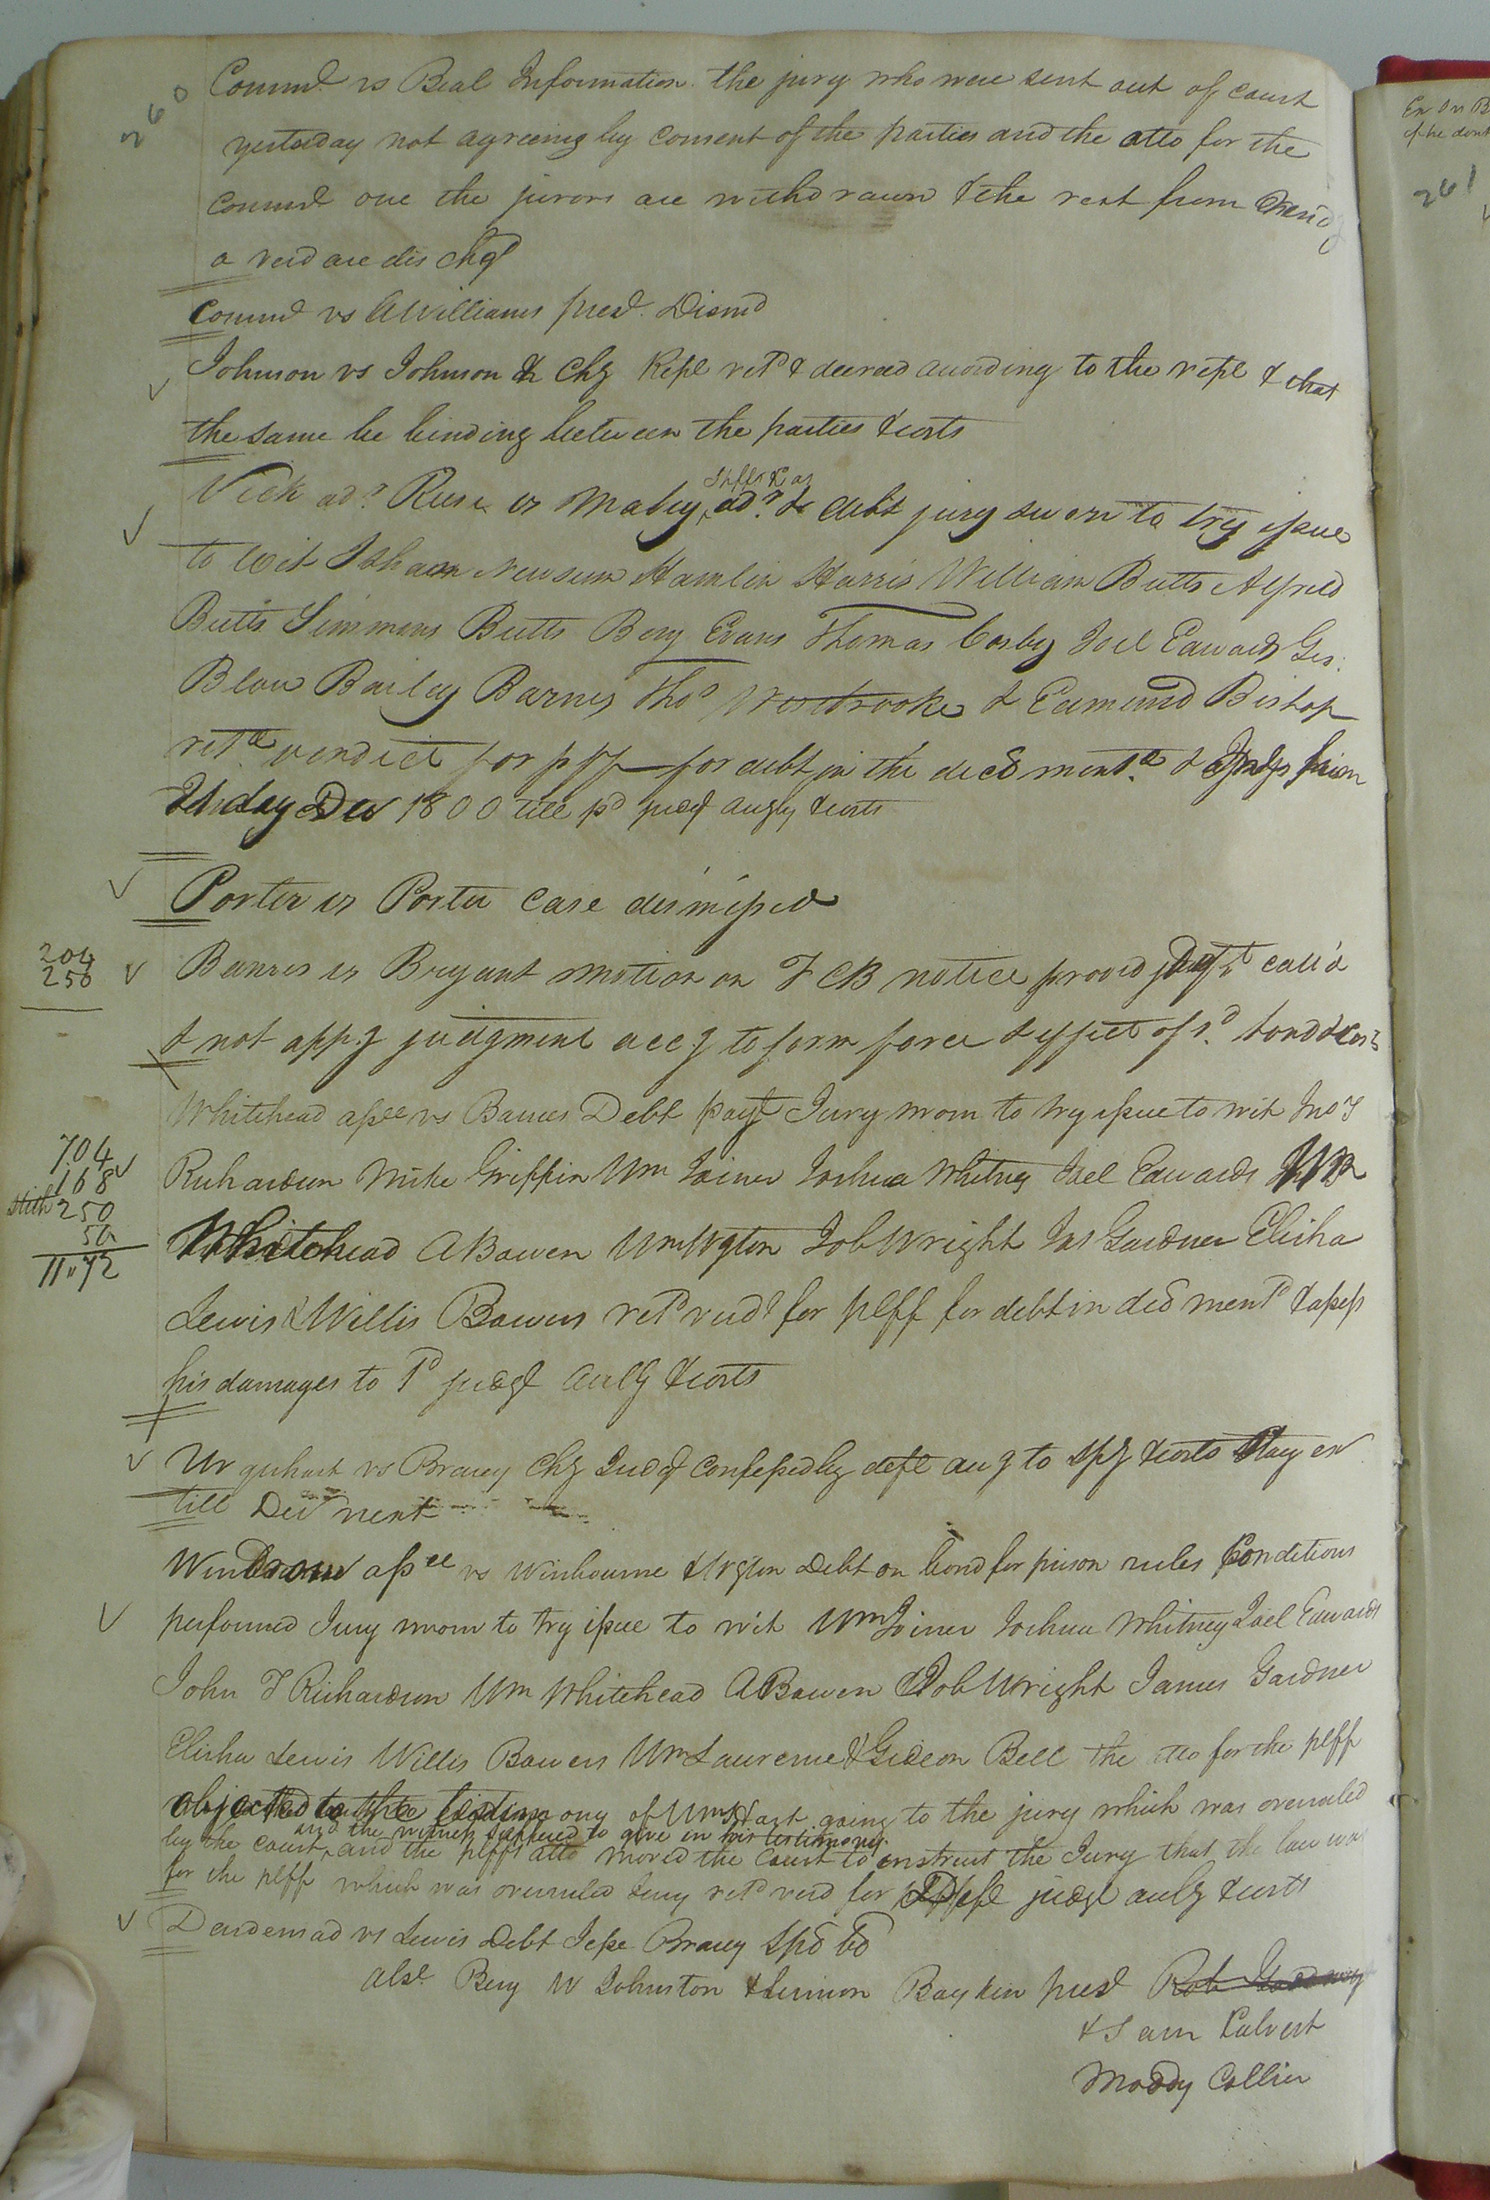 260
Commd vs Beal Information the jury who were sent out of court
yesterday not agreeing by consent of the parties and the atto for the
commd one the jurors are withdrawn & the rest from
a verd are dischgd
Commd vs AWilliams prest. Dismd
Johnson vs Johnson & Chy Rept retd & decreed according to the rept & that
the same be binding between the parties & costs
Vick adr. vs Mabry adr. & debt jury sworn to try issue
to wit Isham Newsum Hamlin Harris William Butts Alfred
Butts Simmons Butts Benj Evans Thomas Cosby Joel Edwards Geo.
Blow Bailey Barnes Thos Westbrooke & Edmund Bishop
retd verdict for plff for debt in the decd mentd &
day Dec 1800 till pd judgt accg & costs
Porter vs Porter case dismissed
204
250
Barnes vs Bryant motion on FCB notice proved call'd
& not appg judgment accg to form force & effect of sd. bond & costs
Whitehead assee vs Barnes Debt payt Jury sworn to try issue to wit Jno T
7.04
168
Stith 250
50
11.72
Richardson Mike Griffin Wm Joiner Joshua Whitney Joel Edwards Wm
Whitehead ABowen Wm Wgton Job Wright Jas Gardner Elisha
Lewis & Willis Bowers retd verdt for plff for debt in decd mentd & assess
his damages to 1d judgt accdg & costs
Urquhart vs Bracey Chy Judgt confessed by deft accg to spy & costs Stay ex
till Decr next
assee vs Winbourne & Wgton Debt on bond for prison rules Conditions
performed Jury sworn to try issue to wit Wm Joiner Joshua Whitney Joel Edwards
John T Richardson Wm Whitehead ABowen Job Wright James Gardner
Elisha Lewis Willis Bowers Wm Lawrence & Gideon Bell the atto for the plff
objected to the testimony of Wm going to the jury which was overruled
and the witness suffered to give in his testimony
by the court, and the plffs atto moved the Court to instruct the Jury that the law was
for the plff which was overruled Jury retd verd for Deft judgt accdg & costs
vs Lewis Debt Jesse Bracey spd bd
abst Benj W Johnston & Lemon Boykin prest
& Sam Calvert
Moody Collier
Ex
if he dont
261